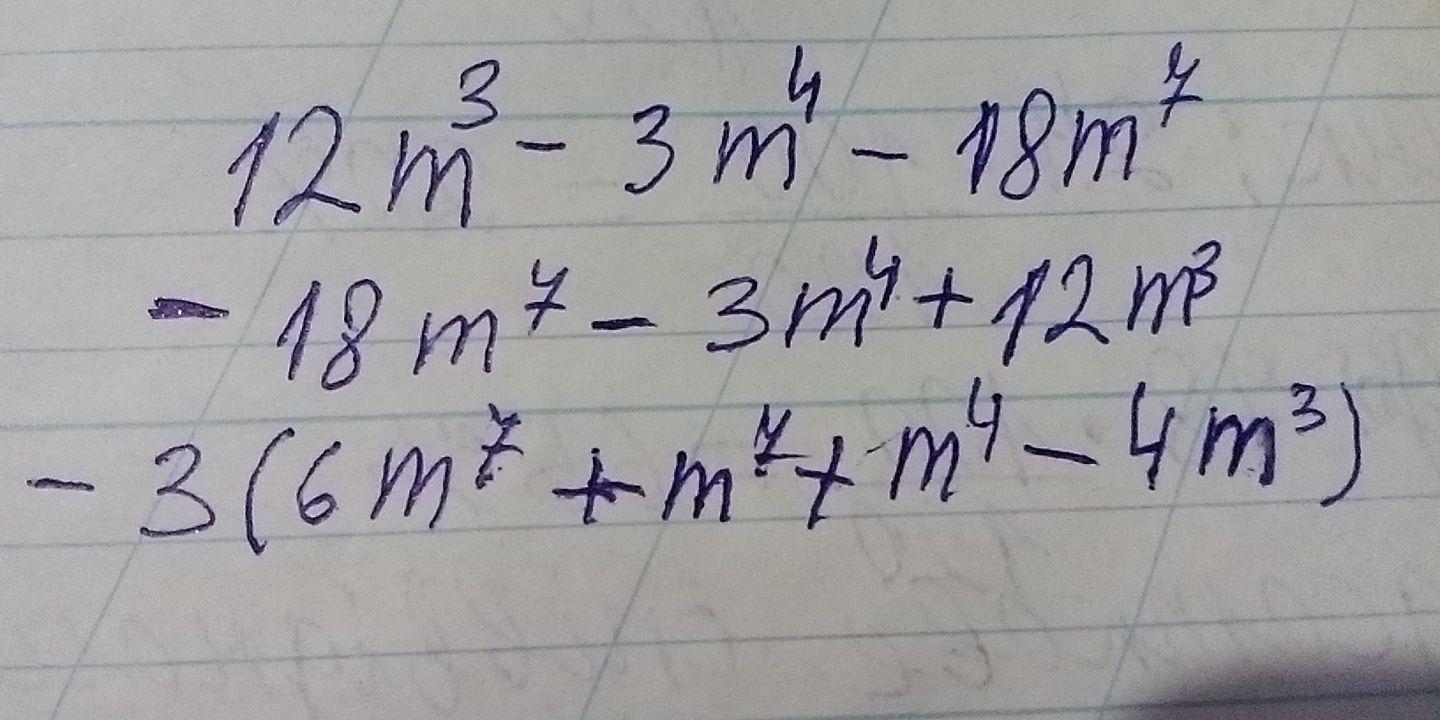 12m³ - 3m⁴ - 18m⁷
- 18m⁷ - 3m⁴ + 12m³
- 3(6m⁷ + m⁷ + m⁴ - 4m³)